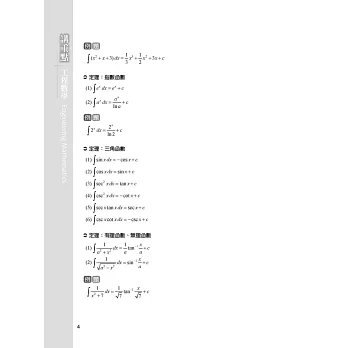 講重點
工程數學 Engineering Mathematics
例題
∫(x² + x + 3) dx = 1/3 x³ + 1/2 x² + 3x + c
⊃ 定理：指數函數
(1) ∫eˣ dx = eˣ + c
(2) ∫aˣ dx = aˣ/ln a + c
例題
∫2ˣ dx = 2ˣ/ln 2 + c
⊃ 定理：三角函數
(1) ∫sin x dx = −cos x + c
(2) ∫cos x dx = sin x + c
(3) ∫sec² x dx = tan x + c
(4) ∫csc² x dx = −cot x + c
(5) ∫sec x tan x dx = sec x + c
(6) ∫csc x cot x dx = −csc x + c
⊃ 定理：有理函數、無理函數
(1) ∫1/(a² + x²) dx = 1/a tan⁻¹ x/a + c
(2) ∫1/√(a² − x²) dx = sin⁻¹ x/a + c
例題
∫1/(x² + 7) dx = 1/√7 tan⁻¹ x/√7 + c
4